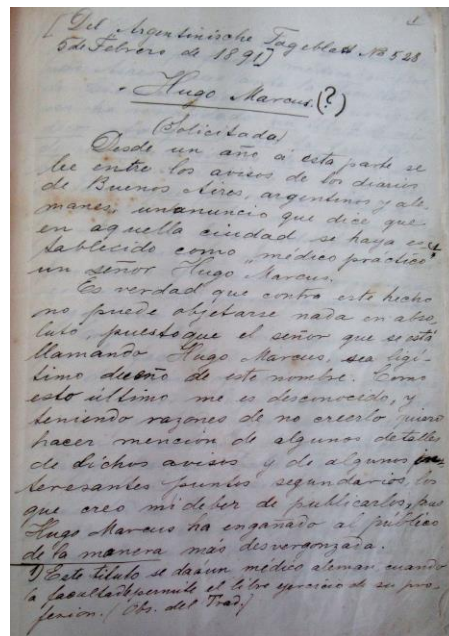 1
[Del Argentinische Tageblatt No 528
5 de Febrero de 1891]
"Hugo Marcus. (?)
(Solicitada)
Desde un año á esta parte se
lee entre los avisos de los diarios
de Buenos Aires, argentinos y ale
manes, un anuncio que dice que
en aquella ciudad se haya es
tablecido como "médico práctico"
un señor Hugo Marcus.
Es verdad que contra este hecho
no puede objetarse nada en abso
luto, puesto que el señor que se está
llamando Hugo Marcus, sea ligí-
timo dueño de este nombre. Como
esto último me es desconocido, y
teniendo razones de no creerlo quiero
hacer mención de algunos detalles
de dichos avisos y de algunos in-
teresantes puntos segundarios, los
que creo mi deber de publicarlos, pues
Hugo Marcus ha engañado al público
de la manera más desvergonzada.
1) Este título se dá á un médico aleman, cuando
la facultad permite el libre ejercicio de su pro-
fesion. (Obs. del Trad.)